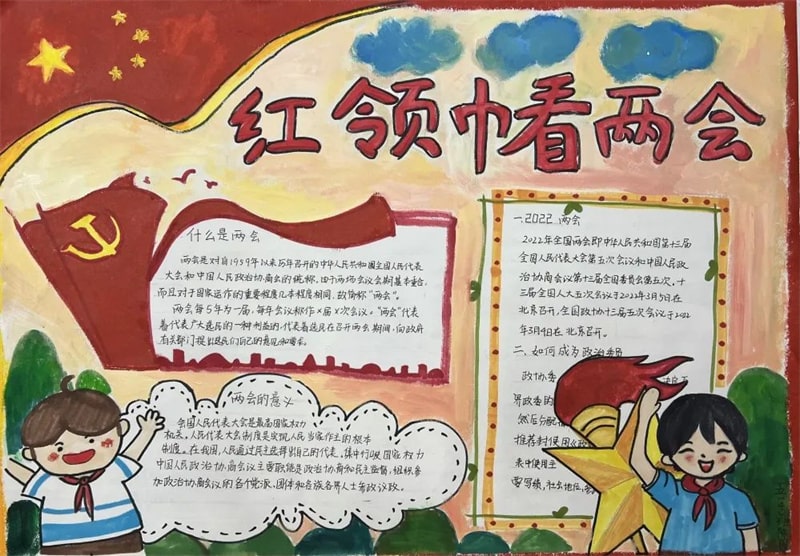 红领巾看两会
什么是两会
两会是对自1959年以来历年召开的中华人民共和国全国人民代表
大会和中国人民政治协商会议的统称,由于两场会议会期基本重合,
而且对于国家运作的重要程度几乎程度相同,故简称“两会”。
两会每5年为一届,每年会议称作×届×次会议。“两会”代表
着代表广大选民的一种利益的,代表着选民在召开两会期间,向政府
有关部门提出选民们自己的意见和要求。
两会的意义
全国人民代表大会是最高国家权力
机关,人民代表大会制度是实现人民当家作主的根本
制度。在我国,人民通过民主选举出自己的代表,集中行使国家权力
中国人民政治协商会议主要职能是政治协商和民主监督,组织参
加政治协商会议的各个党派、团体和各族各界人士参政议政。
一.2022 两会
2022年全国两会即中华人民共和国第十三届
全国人民代表大会第五次会议和中国人民政
治协商会议第十三届全国委员会第五次,十
三届全国人大五次会议于2022年3月5日在
北京召开,全国政协十三届五次会议于2022
年3月4日在北京召开。
二、如何成为政治委员
政协委
界政委的
然后分配
推荐时使用《政
表中使用主
要写绩,社会地位,